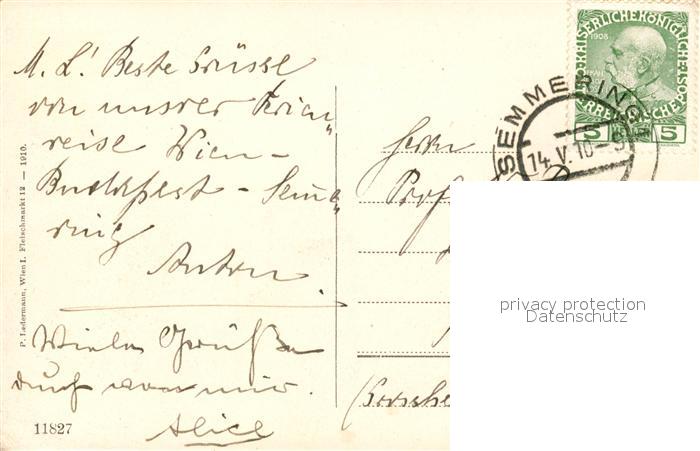 M. L.! Beste Grüsse
von unsrer Ferien„
reise Wien –
Budapest – Sem„
ring
Anton.
Viele Grüße
auch von mir.
Alice
11827
P. Ledermann, Wien I. Fleischmarkt 12 — 1910.
Herrn
Prof
KAISERLICHE KÖNIGLICHE
ÖSTERREICHISCHE POST
1908
5 5
SEMMERING
14. V. 10 – 9
privacy protection
Datenschutz